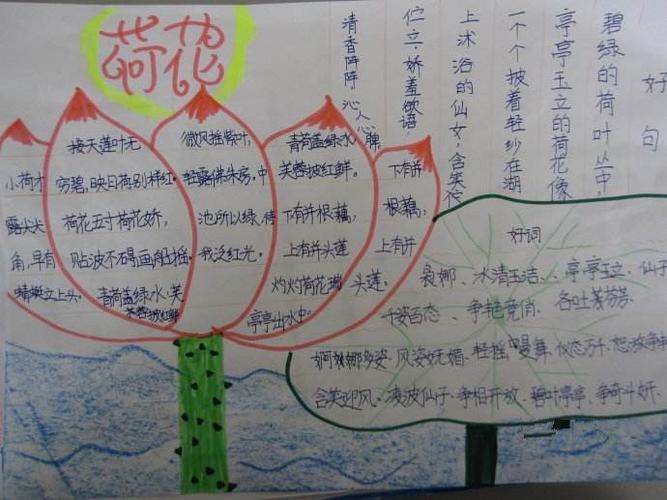 荷花
小荷才
露尖尖
角,早有
蜻蜓立上头。
接天莲叶无
穷碧,映日荷别样红。
荷花五寸荷花娇,
贴波不碍画船摇。
青荷盖绿水,芙
蓉披红鲜
微风摇紫叶,
轻露拂朱房。中
池所以绿,待
我泛红光。
青荷盖绿水,
芙蓉披红鲜。
下有并根藕,
上有并头莲
灼灼荷花瑞,
亭亭出水中。
下有并
根藕,
上有并
头莲。
好句
碧绿的荷叶丛中,
亭亭玉立的荷花像
一个个披着轻纱在湖
上沐浴的仙女,含笑
伫立,娇羞欲语,
清香阵阵,沁人心脾
好词
袅娜、冰清玉洁、亭亭玉立、仙子
千姿百态、争艳竞俏、各吐芬芳、
婀娜多姿、风姿妩媚、轻摇曼舞、仪态万千、
含笑迎风、凌波仙子、争相开放、碧叶亭亭、争奇斗妍、